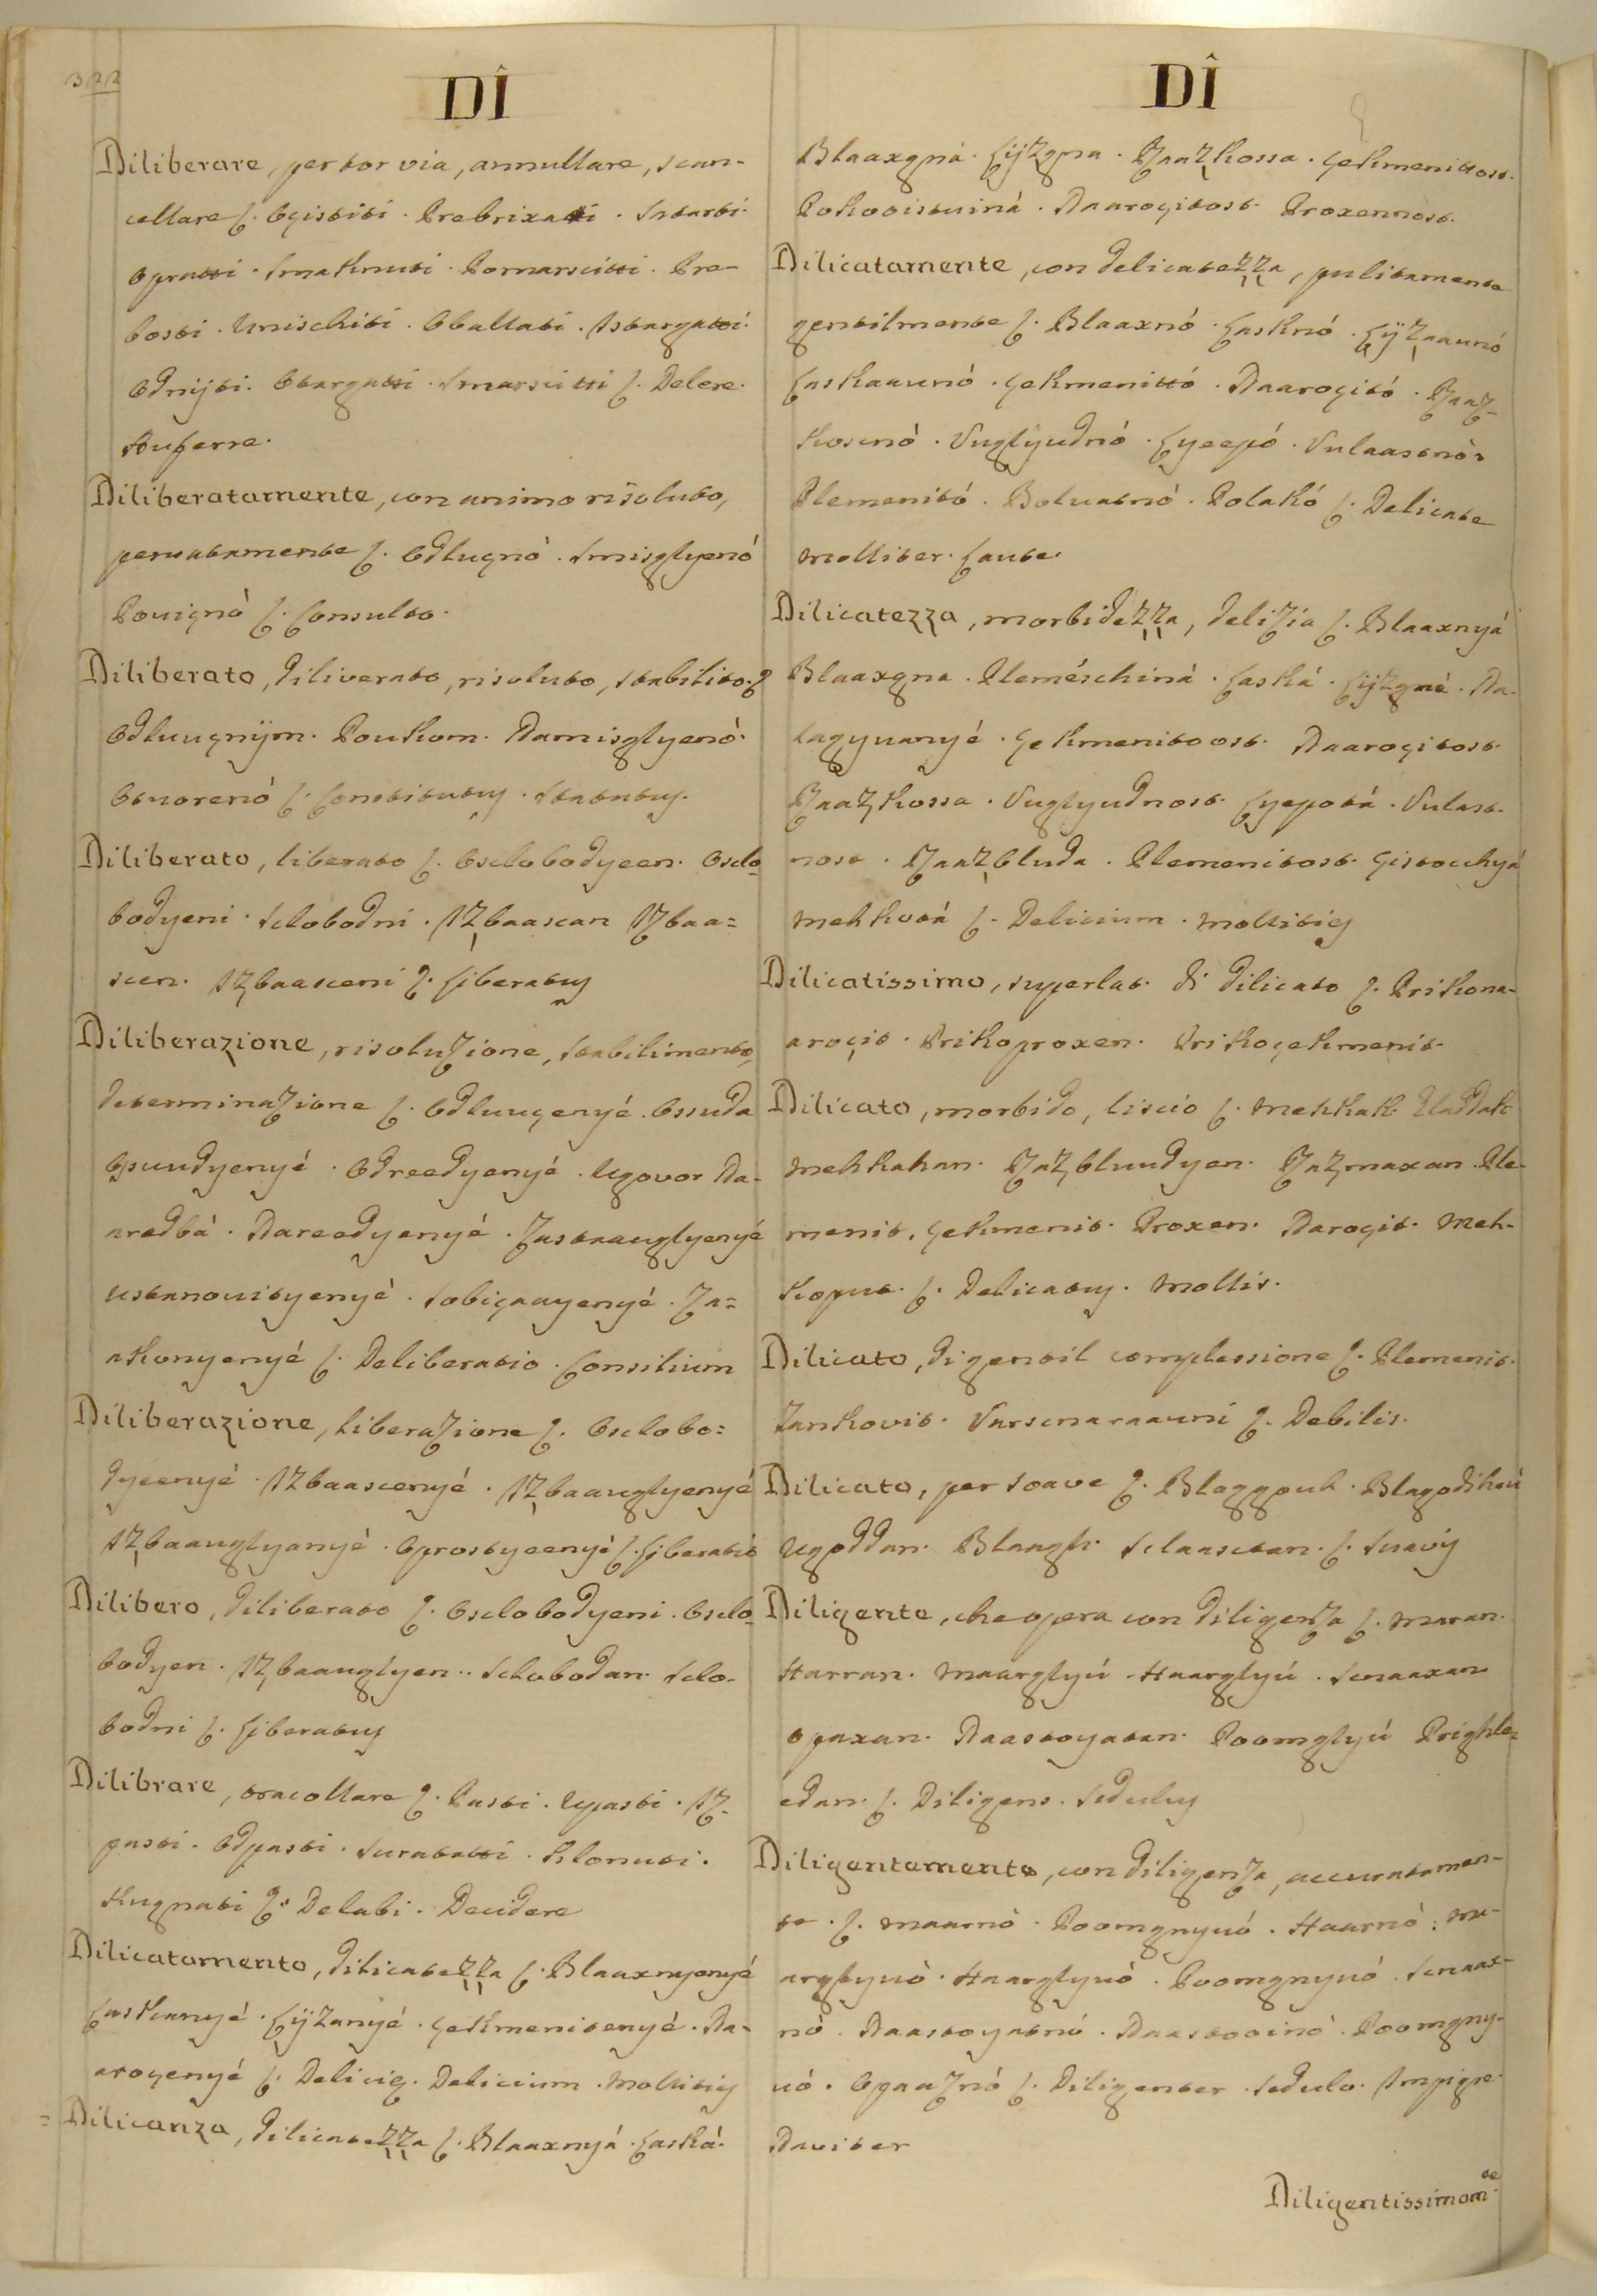 322
DI
Diliberare, per tor via, annullare, scan-
cellare ſ. Ocistiti. Prebrixati. Satarti.
Opratti. Smaknuti. Pomarscitti. Pre-
bosti. Unischiti. Oballati. Istargatti.
Odnijti. Otargatti. Smarscitti ſ. Delere.
Auferre.
Diliberatamente, con animo risoluto,
pensatamente ſ. Odlucnò. Smisglyenó
Povicnò ſ. Consulto.
Diliberato, diliverato, risoluto, stabilito. ſ
Odluucnijm. Poukom. Namisglyenò.
Otvorenó ſ. Constitutus. Statutus.
Diliberato, liberato ſ. Oslobodyeen. Oslo-
bodyeni. Slobodni. Izbaascan Izbaa=
scen. Izbaasceni ſ. Liberatus
Diliberazione, risoluzione, stabilimento,
determinazione ſ. Odluucenyé. Ossuda
Osuudyenyé. Odreedyenyé. Ugovor Na-
aredbà. Nareedyenyé. Zastaauglyenyé
Ustanovityenyé. Sobicaayenyé. Za=
akonyenyé ſ. Deliberatio. Consilium
Diliberazione, liberazione ſ. Oslobo=
dyeenyé. Izbaascenyé. Izbaauglyenyé
Izbaauglyanyé. Oprostyeenyé ſ. Liberatio
Dilibero, diliberato ſ. Oslobodyeni. Oslo-
bodyen. Izbaauglyen. Slobodan. Slo-
bodni ſ. Liberatus
Dilibrare, tracollare ſ. Pasti. Upasti. Iz-
pasti. Odpasti. Survatatti. Klonuti.
Kugnati ſ. Delabi. Decidere
Dilicatamento, dilicatezza ſ. Blaaxnyenyé
Laskanyé. Lijzanyé. Gekmenitenyé. Na-
arocenyé ſ. Deliciæ. Delicium. Mollities
= Dilicanza, dilicatezza ſ. Blaaxnyá. Laská.
DI
Blaaxgná. Lijzgna. Raazkossa. Gekmenittost.
Pokoistvinà. Naarocitost. Proxennost.
Dilicatamente, con delicatezza, pulitamente
gentilmente ſ. Blaaxnó. Lasknó. Lijzaavnó
Laskaavnò. Gekmenittó. Naarocitó. Raaz-
kosnó. Uuglyudnó. Lyeepó. Vulaastnò.
Plemenitó. Boluatnó. Polakó ſ. Delicate
Molliter. Laute.
Dilicatezza, morbidezza, delizia ſ. Blaaxnyá
Blaaxgna. Pleméschiná. Laská. Lijzgnà. Na-
lagyvanyé. Gekmenitoost. Naarocitost.
Raazkossa. Uuglyudnost. Lyepotá. Vulast-
nost. Raazbluda. Plemenitost. Gistocchyá
Mehkotá ſ. Delicium. Mollities
Dilicatissimo, superlat. di dilicato ſ. Prikona-
arocit. Prikoproxen. Prikogekmenit.
Dilicato, morbido, liscio ſ. Mehkak. Gladdak
Mehkahan. Razbluudyen. Razmaxan. Ple-
menit. Gekmenit. Proxen. Narocit. Meh-
koput. ſ. Delicatus. Mollis.
Dilicato, di gentil complessione ſ. Plemenit.
Tankovit. Varsenaraavni ſ. Debilis.
Dilicato, per soave ſ. Blaggouh. Blagodihni
Ugoddan. Blaagh. Slaastan. ſ. Suavis
Diligente, che opera con diligenza ſ. Maran.
Harran. Maarglyú. Haarglyú. Snaaxan
Opaxan. Naastoyatan. Poomglyú Prighle-
edan. ſ. Diligens. Sedulus
Diligentemente, con diligenza, accuratamen-
te. ſ. Maarnò. Poomgnyvó. Haarnò. Ma-
arglyvò. Haarglyvò. Poomgnyvó. Snaax-
nò. Naastoyatnó. Naastooinò. Poomgny-
vó. Opaaznó ſ. Diligenter. Sedulo. Impigre.
Naviter
Diligentissimam.te